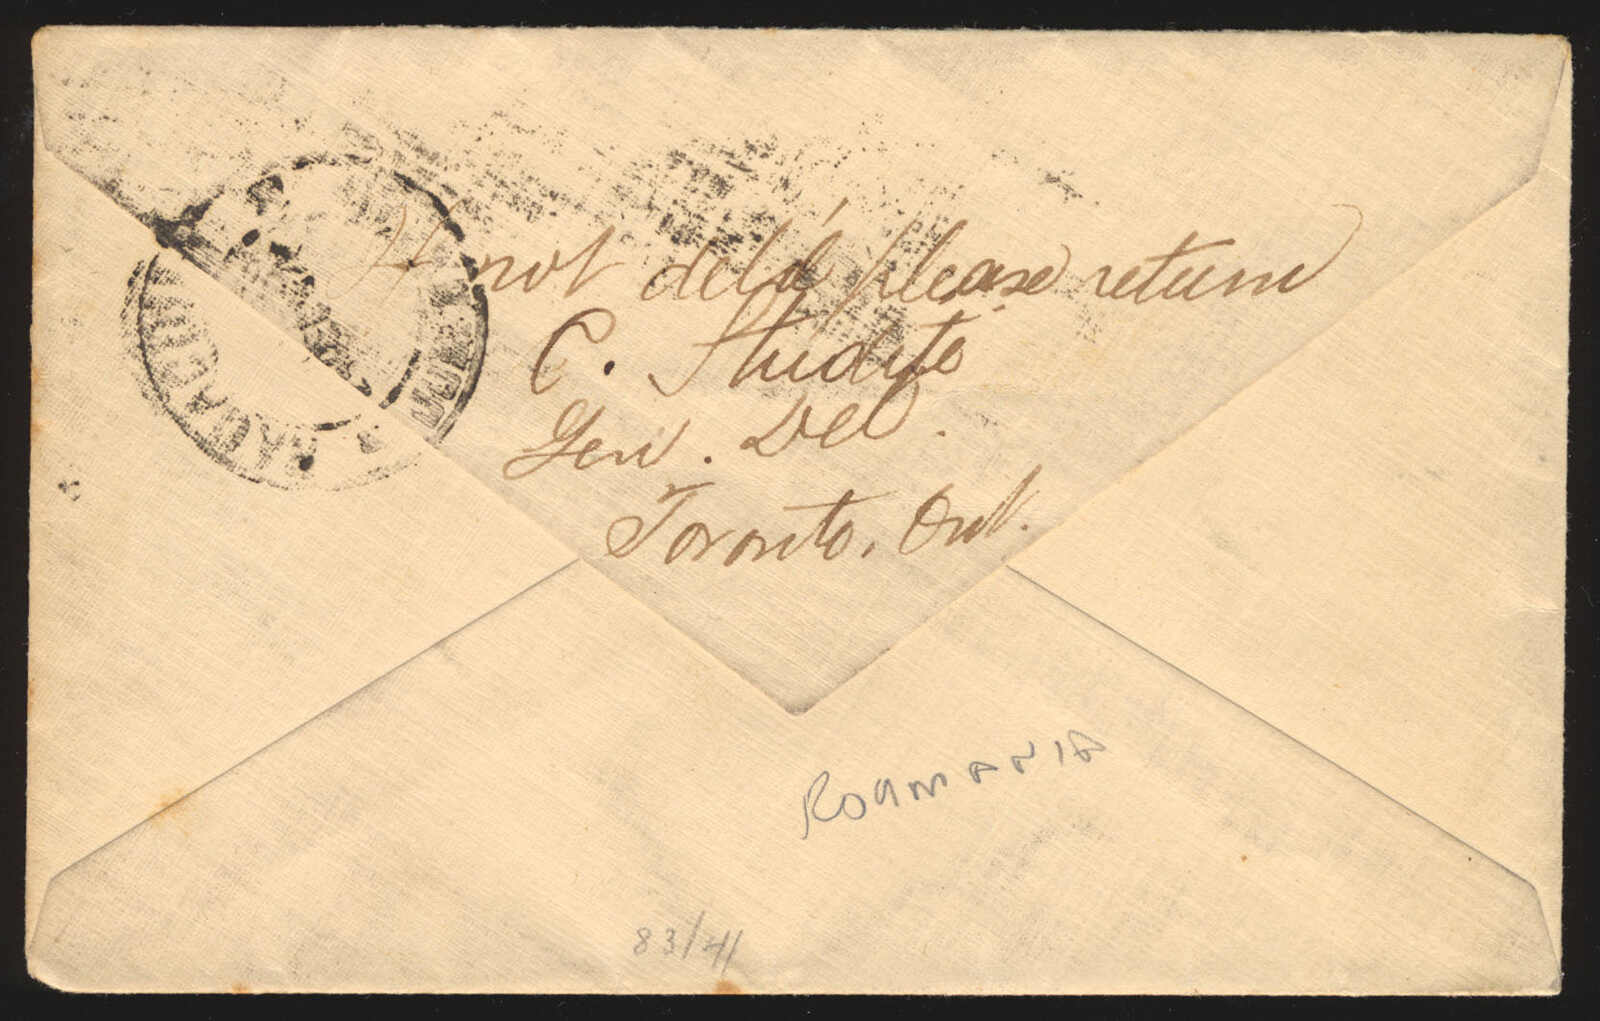 If not del'd please return
C. Studite
Gen. Del.
Toronto, Ont.
ROUMANIA
83/41